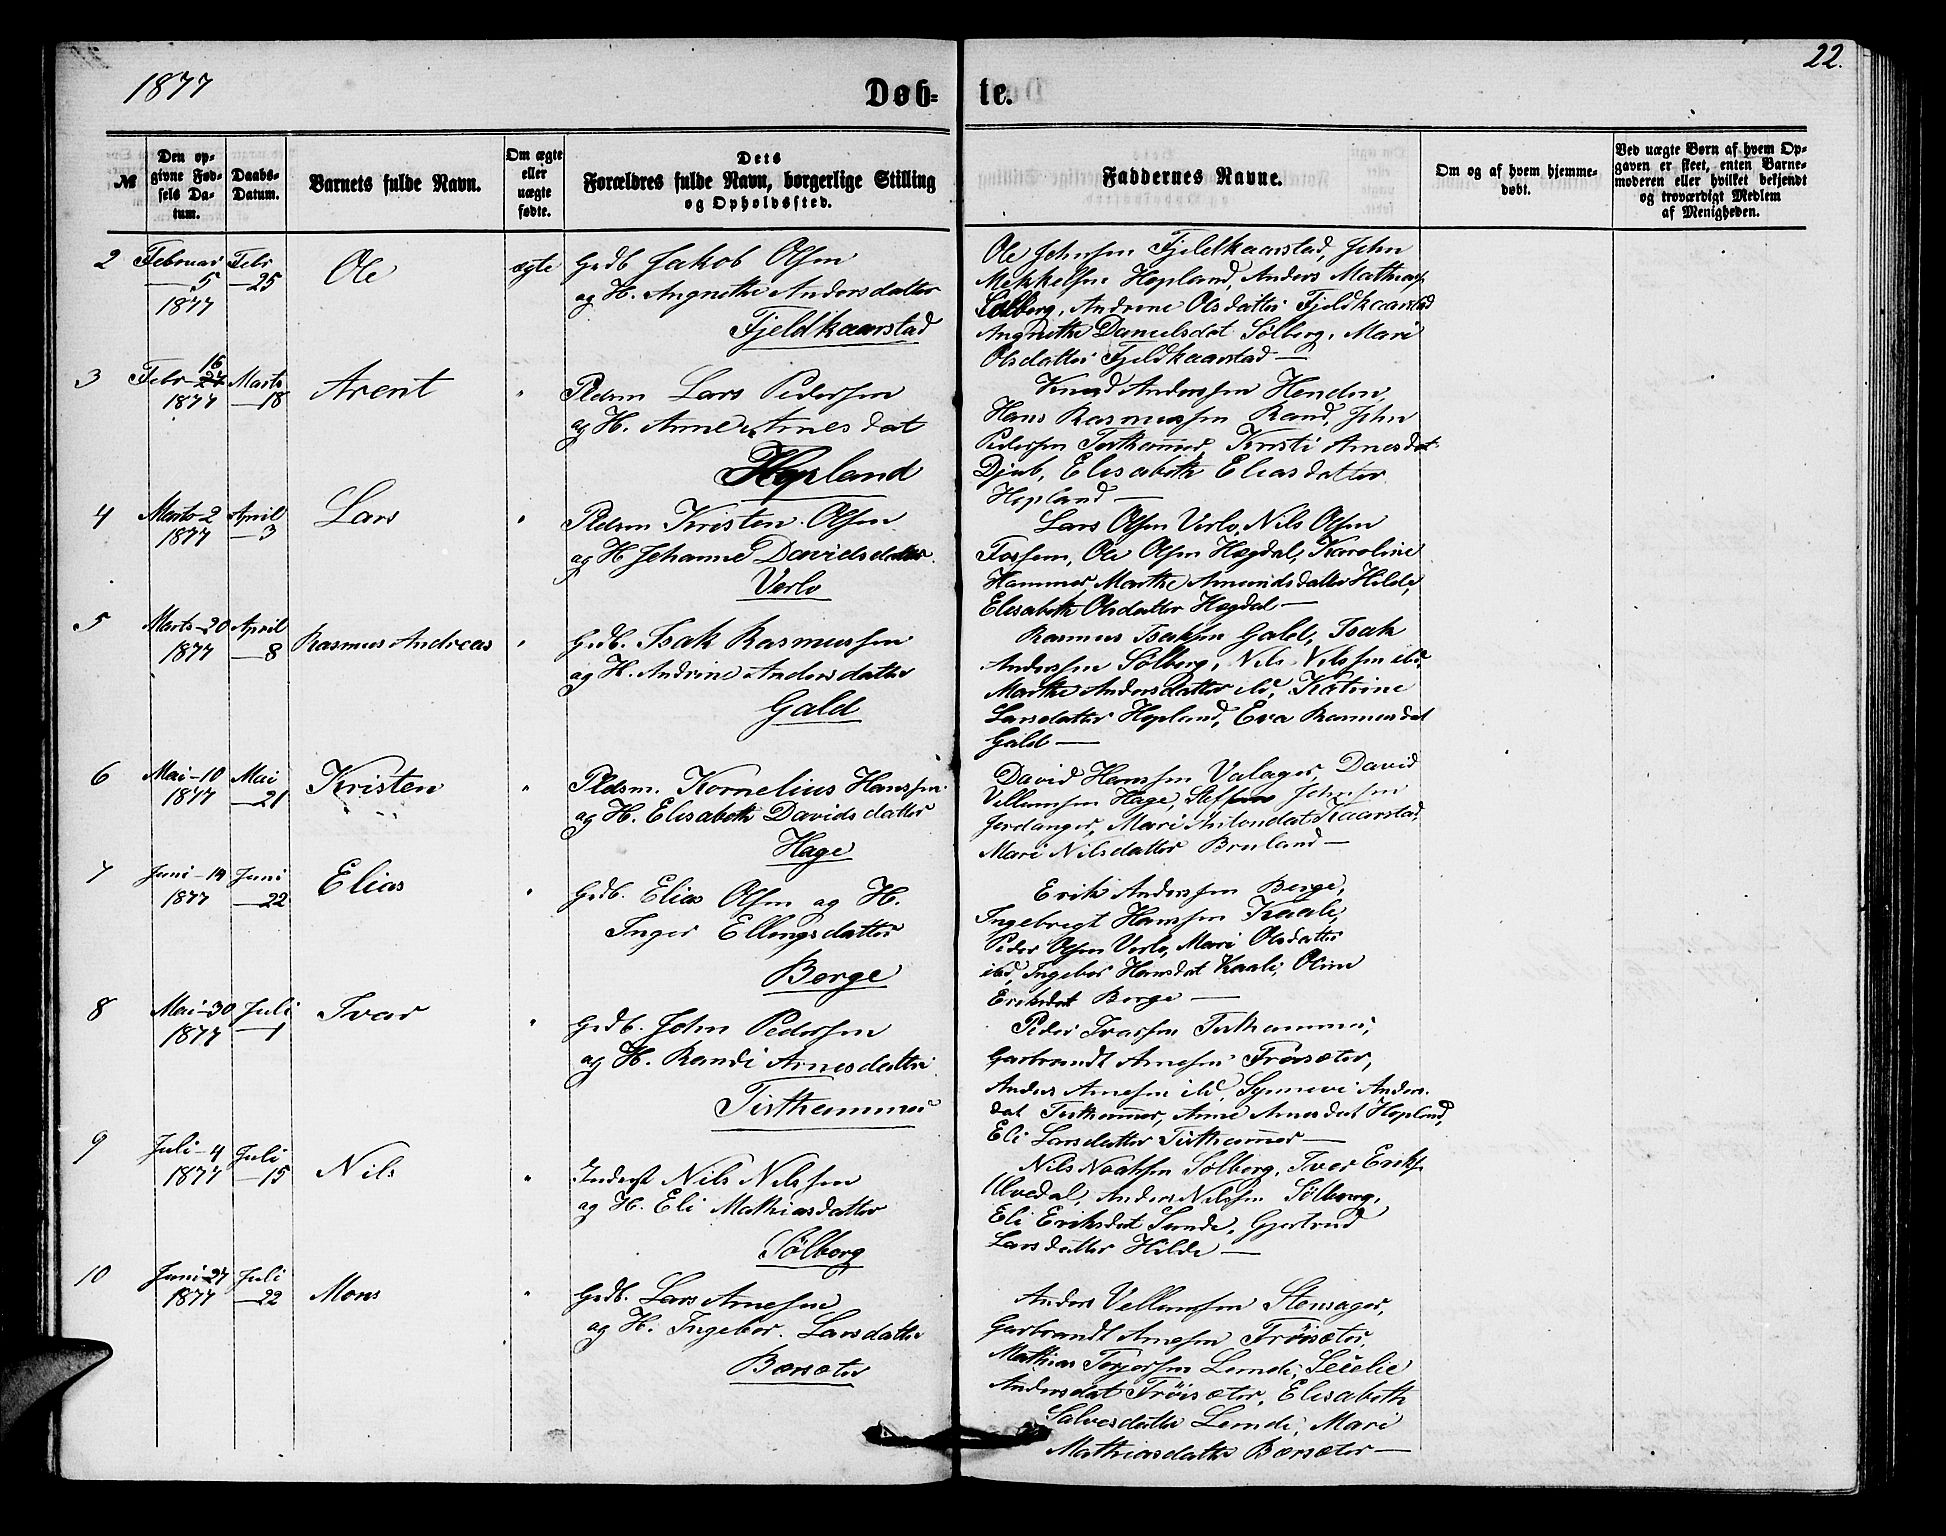 22.
1877
Døb- te.
№
Den opgivne Fødsels Datum.
Daabs-Datum.
Barnets fulde Navn.
Om ægte eller uægte fødte.
Dets Forældres fulde Navn, borgerlige Stilling og Opholdssted.
Faddernes Navne.
Om og af hvem hjemmedøbt.
Ved uægte Børn af hvem Opgaven er skeet, enten Barnemoderen eller hvilket bekjendt og troværdigt Medlem af Menigheden.
2 Februar 5 1877 Febr 25 Ole ægte Grdb. Jakob Olsen
og H. Angnethe Andersdatter
Fjeldkaarstad
Ole Johnsen Fjeldkaarstad, John
Mekkelsen Hopland, Anders Mathias
Solberg, Andrine Olsdatter Fjeldkaarstad
Angnethe Danielsdat Sølberg, Mari
Olsdatter Fjeldkaarstad —
3 Febr 16 1877 Marts 18 Arent " Pldsm Lars Pedersen
og H. Anne Arnesdat
Hopland
Knud Anderssen Henden,
Hans Rasmussen Rand, John
Pedersen Tisthammer, Kristi Arnesdat
Djub, Elisabeth Eliasdatter
Hopland —
4 Marts 2 1877 April 3 Lars " Pldsm Kristen Olsen
og H Johanne Davidsdatter.
Verlo
Lars Olsen Verlo, Nils Olsen
Fossem, Ole Olsen Hægdal, Karoline
Hammer, Marthe Amundsdatter Hilde,
Elisabeth Olsdatter Hægdal —
5 Marts 20 1877 April 8 Rasmus Andreas " Grdb. Isak Rasmussen
og H. Andrine Andersdatter
Gald
Rasmus Isaksen Gald, Isak
Anderssen Sølberg, Nils Nilssen ibd,
Marthe Andersdatter ibd, Katrine
Larsdatter Hopland, Eva Rasmusdat
Gald —
6 Mai 10 1877 Mai 21 Kristen " Pldsm. Kornelius Hanssen
og H. Elisabeth Davidsdatter
Hage
David Hanssen Valager, David
Villumsen Hage, Steffen Johnsen
Jordanger, Mari Antondat Kaarstad,
Mari Nilsdatter Bruland —
7 Juni 14 1877 Juni 22 Elias " Grdb. Elias Olsen og H.
Inger Ellingsdatter
Berge
Erik Anderssen Berge,
Ingebregt Hanssen Kaale,
Peder Olsen Verlo, Mari Olsdatter
ibd, Ingebor Hansdat Kaale, Oline
Eriksdat Berge —
8 Mai 30 1877 Juli 1 Ivar " Grdb. John Pedersen
og H. Randi Arnesdatter
Tisthammer
Peder Ivarsen Tisthammer,
Garbrandt Arnesen Trøisæter,
Anders Arnesen ibd, Synnevi Anders
dat Tisthammer, Anne Arnesdat Hopland,
Eli Larsdatter Tisthammer —
9 Juli 4 1877 Juli 15 Nils " Inderst Nils Nilssen
og H. Eli Mathiasdatter
Sølberg
Nils Noahsen Sølberg, Iver Eriks
Ulvedal, Anders Nilssen Sølberg,
Eli Eriksdat Sande, Gjertrud
Larsdatter Hilde —
10 Juni 27 1877 Juli 22 Mons " Grdb. Lars Arnesen
og H. Ingebor Larsdatter
Børsæter
Anders Villumsen Stensager,
Garbrandt Arnesen Trøisæter,
Mathias Torjersen Lemdi, Secelie
Andersdat Trøisæter, Elisabeth
Salvesdatter Lemdi, Mari
Mathiasdatter Børsæter —